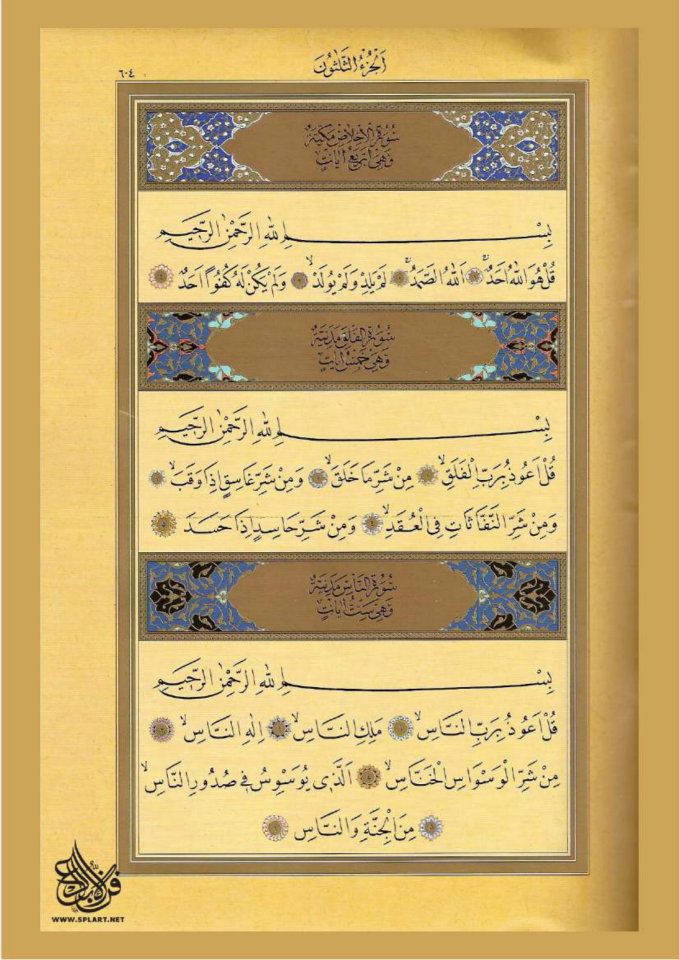 اَلْجُزْءُ الثَّلٰثُونَ
٦٠٤
سُورَةُ الْاِخْلَاصِ مَكِّيَّةٌ
وَهِيَ اَرْبَعُ اٰيَاتٍ
بِسْمِ اللّٰهِ الرَّحْمٰنِ الرَّحٖيمِ
قُلْ هُوَ اللّٰهُ اَحَدٌۚ ١ اَللّٰهُ الصَّمَدُۚ ٢ لَمْ يَلِدْ وَلَمْ يُولَدْۙ ٣ وَلَمْ يَكُنْ لَهُ كُفُوًا اَحَدٌ ٤
سُورَةُ الْفَلَقِ مَدَنِيَّةٌ
وَهِيَ خَمْسُ اٰيَاتٍ
بِسْمِ اللّٰهِ الرَّحْمٰنِ الرَّحٖيمِ
قُلْ اَعُوذُ بِرَبِّ الْفَلَقِۙ ١ مِنْ شَرِّ مَا خَلَقَۙ ٢ وَمِنْ شَرِّ غَاسِقٍ اِذَا وَقَبَۙ ٣
وَمِنْ شَرِّ النَّفَّاثَاتِ فِي الْعُقَدِۙ ٤ وَمِنْ شَرِّ حَاسِدٍ اِذَا حَسَدَ ٥
سُورَةُ النَّاسِ مَدَنِيَّةٌ
وَهِيَ سِتُّ اٰيَاتٍ
بِسْمِ اللّٰهِ الرَّحْمٰنِ الرَّحٖيمِ
قُلْ اَعُوذُ بِرَبِّ النَّاسِۙ ١ مَلِكِ النَّاسِۙ ٢ اِلٰهِ النَّاسِۙ ٣
مِنْ شَرِّ الْوَسْوَاسِ الْخَنَّاسِۙ ٤ اَلَّذٖي يُوَسْوِسُ فٖي صُدُورِ النَّاسِۙ
٥ مِنَ الْجِنَّةِ وَالنَّاسِ ٦
WWW.SPLART.NET